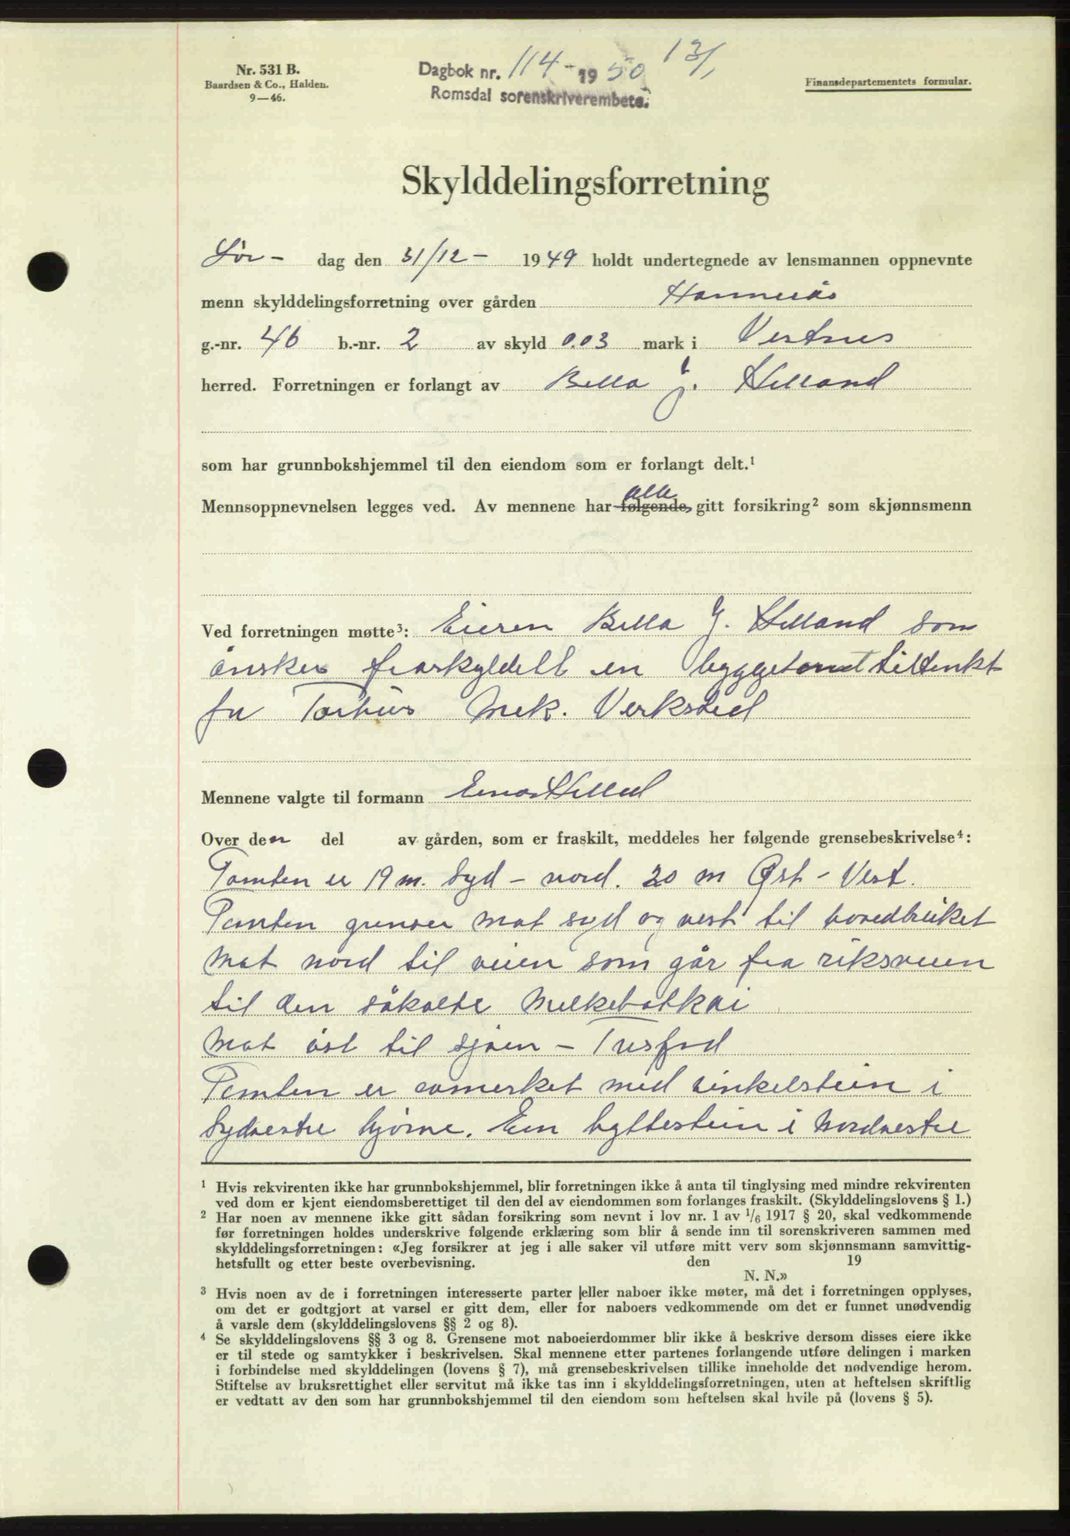 Nr. 531 B.
Baardsen & Co., Halden.
9—46.
Dagbok nr. 114 - 1950 13/1
Romsdal sorenskriverembete.
Finansdepartementets formular.
Skylddelingsforretning
Lør- dag den 31/12 - 1949 holdt undertegnede av lensmannen oppnevnte
menn skylddelingsforretning over gården Hammerås
g.-nr. 46 b.-nr. 2 av skyld 0.03 mark i Vestnes
herred. Forretningen er forlangt av Bella J. Helland
som har grunnbokshjemmel til den eiendom som er forlangt delt.¹
Mennsoppnevnelsen legges ved. Av mennene har følgende alle gitt forsikring² som skjønnsmenn
Ved forretningen møtte³: Eieren Bella J. Helland som
ønsker fraskyldelt en byggetomt tiltenkt
for Mek. Verksted
Mennene valgte til formann Einar Helland
Over den del av gården, som er fraskilt, meddeles her følgende grensebeskrivelse⁴:
Tomten er 19 m. Syd - nord. 20 m Øst - Vest.
Tomten grenser mot syd og vest til hovedbruket
Mot nord til veien som går fra riksveien
til den såkalte Melkebåtkai
Mot øst til sjøen - Tresfjord
Tomten er avmerket med vinkelstein i
Sydvestre hjørne. Em hyttestein i Nordvestre
¹ Hvis rekvirenten ikke har grunnbokshjemmel, blir forretningen ikke å anta til tinglysing med mindre rekvirenten
ved dom er kjent eiendomsberettiget til den del av eiendommen som forlanges fraskilt. (Skylddelingslovens § 1.)
² Har noen av mennene ikke gitt sådan forsikring som nevnt i lov nr. 1 av 1/6 1917 § 20, skal vedkommende
før forretningen holdes underskrive følgende erklæring som blir å sende inn til sorenskriveren sammen med
skylddelingsforretningen: «Jeg forsikrer at jeg i alle saker vil utføre mitt verv som skjønnsmann samvittig-
hetsfullt og etter beste overbevisning. den 19
N. N.»
³ Hvis noen av de i forretningen interesserte parter eller naboer ikke møter, må det i forretningen opplyses,
om det er godtgjort at varsel er gitt dem, eller for naboers vedkommende om det er funnet unødvendig
å varsle dem (skylddelingslovens §§ 2 og 8).
⁴ Se skylddelingslovens §§ 3 og 8. Grensene mot naboeierdommer blir ikke å beskrive dersom disses eiere ikke
er til stede og samtykker i beskrivelsen. Skal mennene etter partenes forlangende utføre delingen i marken
i forbindelse med skylddelingen (lovens § 7), må grensebeskrivelsen tillike inneholde det nødvendige herom.
Stiftelse av bruksrettighet eller servitut må ikke tas inn i skylddelingsforretningen, uten at heftelsen skriftlig
er vedtatt av den som har grunnbokshjemmel til den eiendom som heftelsen skal hvile på (lovens § 5).